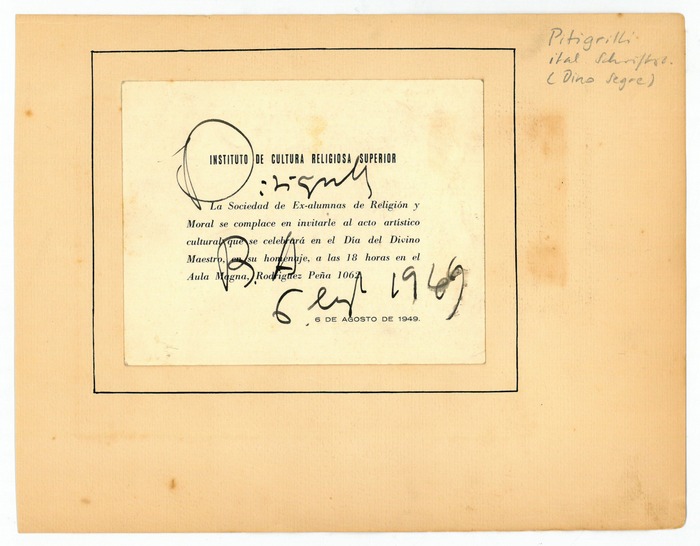 Pitigrilli
ital Schriftst.
(Dino Segre)
INSTITUTO DE CULTURA RELIGIOSA SUPERIOR
Pitigrilli
La Sociedad de Ex-alumnas de Religión y
Moral se complace en invitarle al acto artístico
cultural que se celebrará en el Día del Divino
Maestro, en su homenaje, a las 18 horas en el
Aula Magna, Rodríguez Peña 1062.
B. A.
6 1949
6 DE AGOSTO DE 1949.